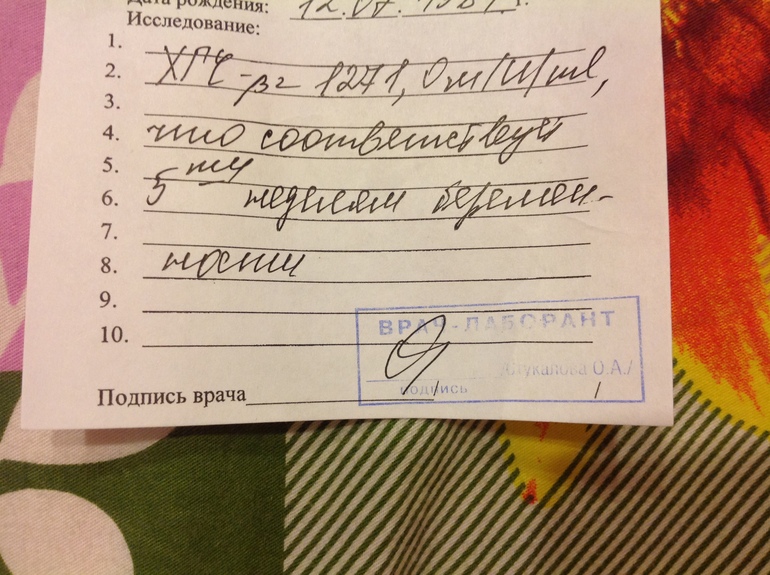 Дата рождения: 12.07.1981 г.
Исследование:
1.
2. ХГЧ-β= 1271,0 мМ/ml,
3.
4. что соответствует
5.
6. 5ти неделям беремен-
7.
8. ности
9.
10.
ВРАЧ-ЛАБОРАНТ
О.А./
подпись
Подпись врача